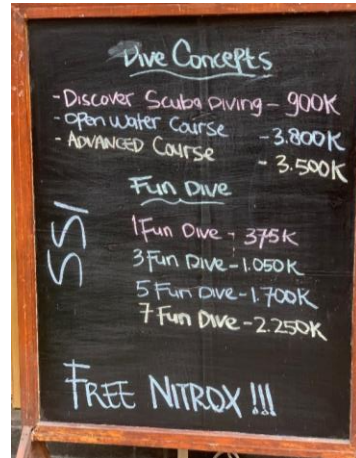 Dive Concepts
- Discover Scuba Diving - 900K
- Open Water Course - 3.800K
- ADVANCED Course - 3.500K
Fun Dive
1 Fun Dive - 375K
3 Fun Dive - 1.050K
5 Fun Dive - 1.700K
7 Fun Dive - 2.250K
SSI
FREE NITROX !!!